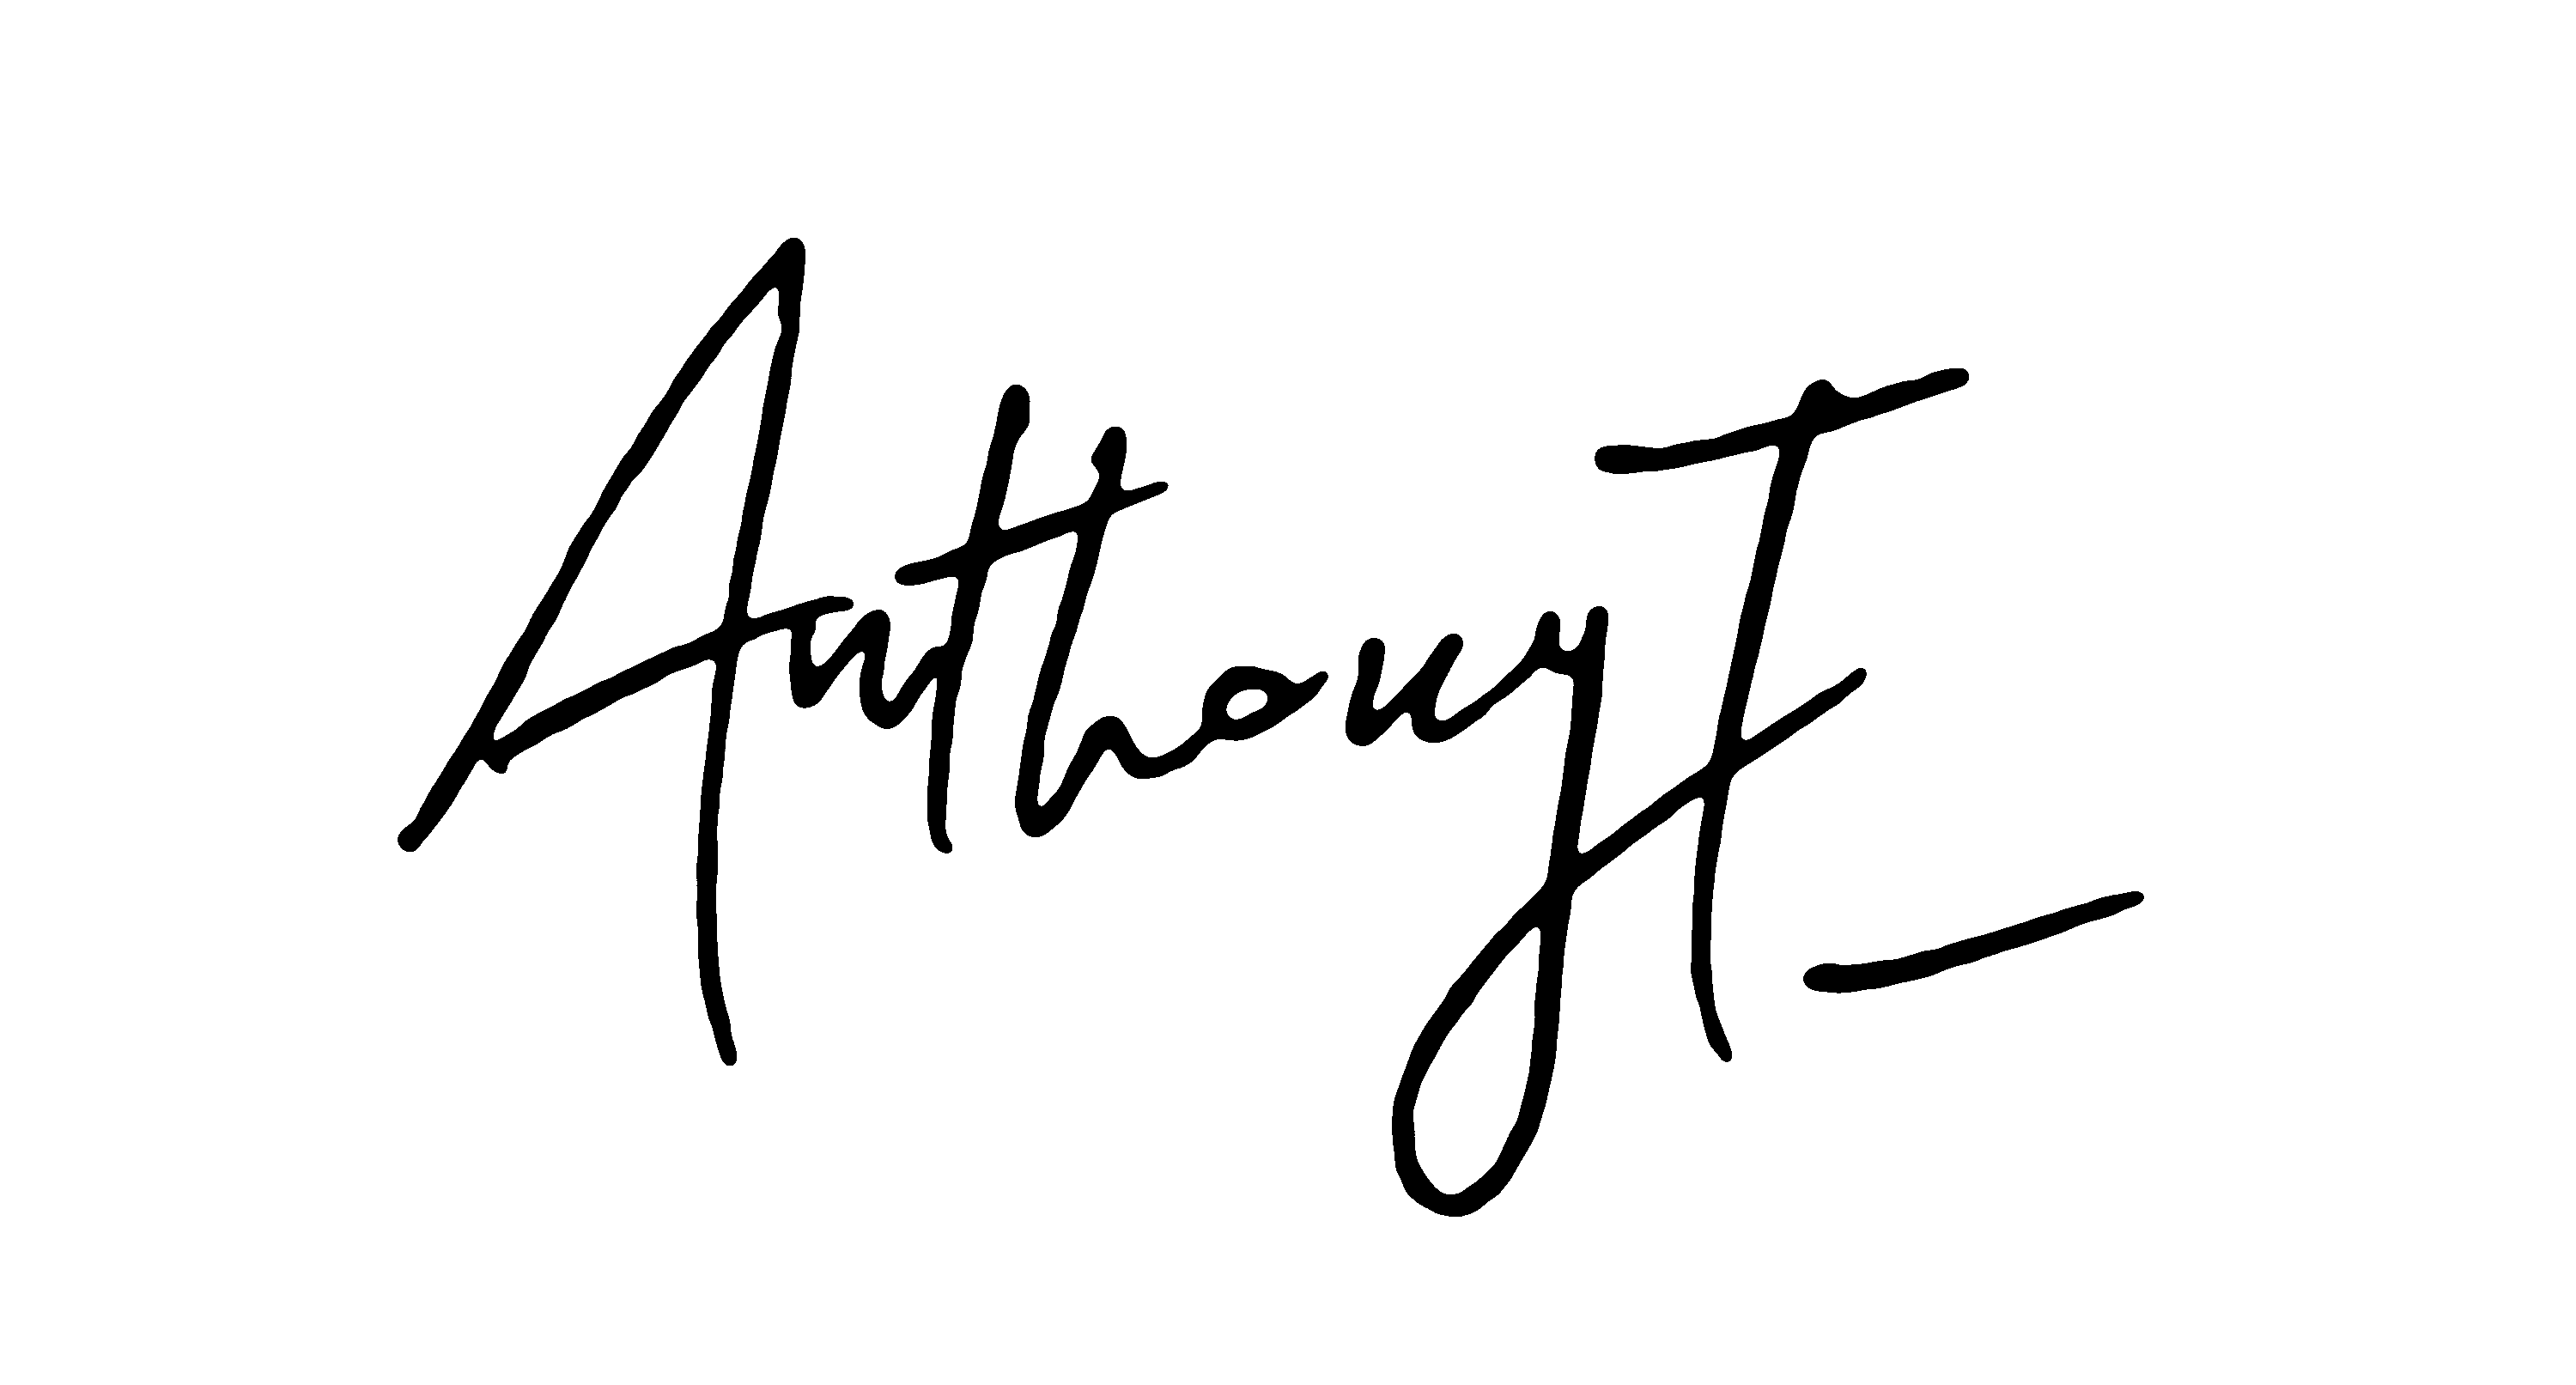 Anthony F_